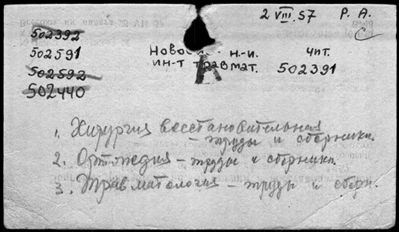 2 VIII 57 Р. А.
С
502392
502591
502592
502440
Новос н.-и. чит.
ин-т травмат. 502391
1. Хирургия восстановительная
– труды и сборники.
2. Ортопедия – труды и сборники.
3. Травматология – труды и сборн.